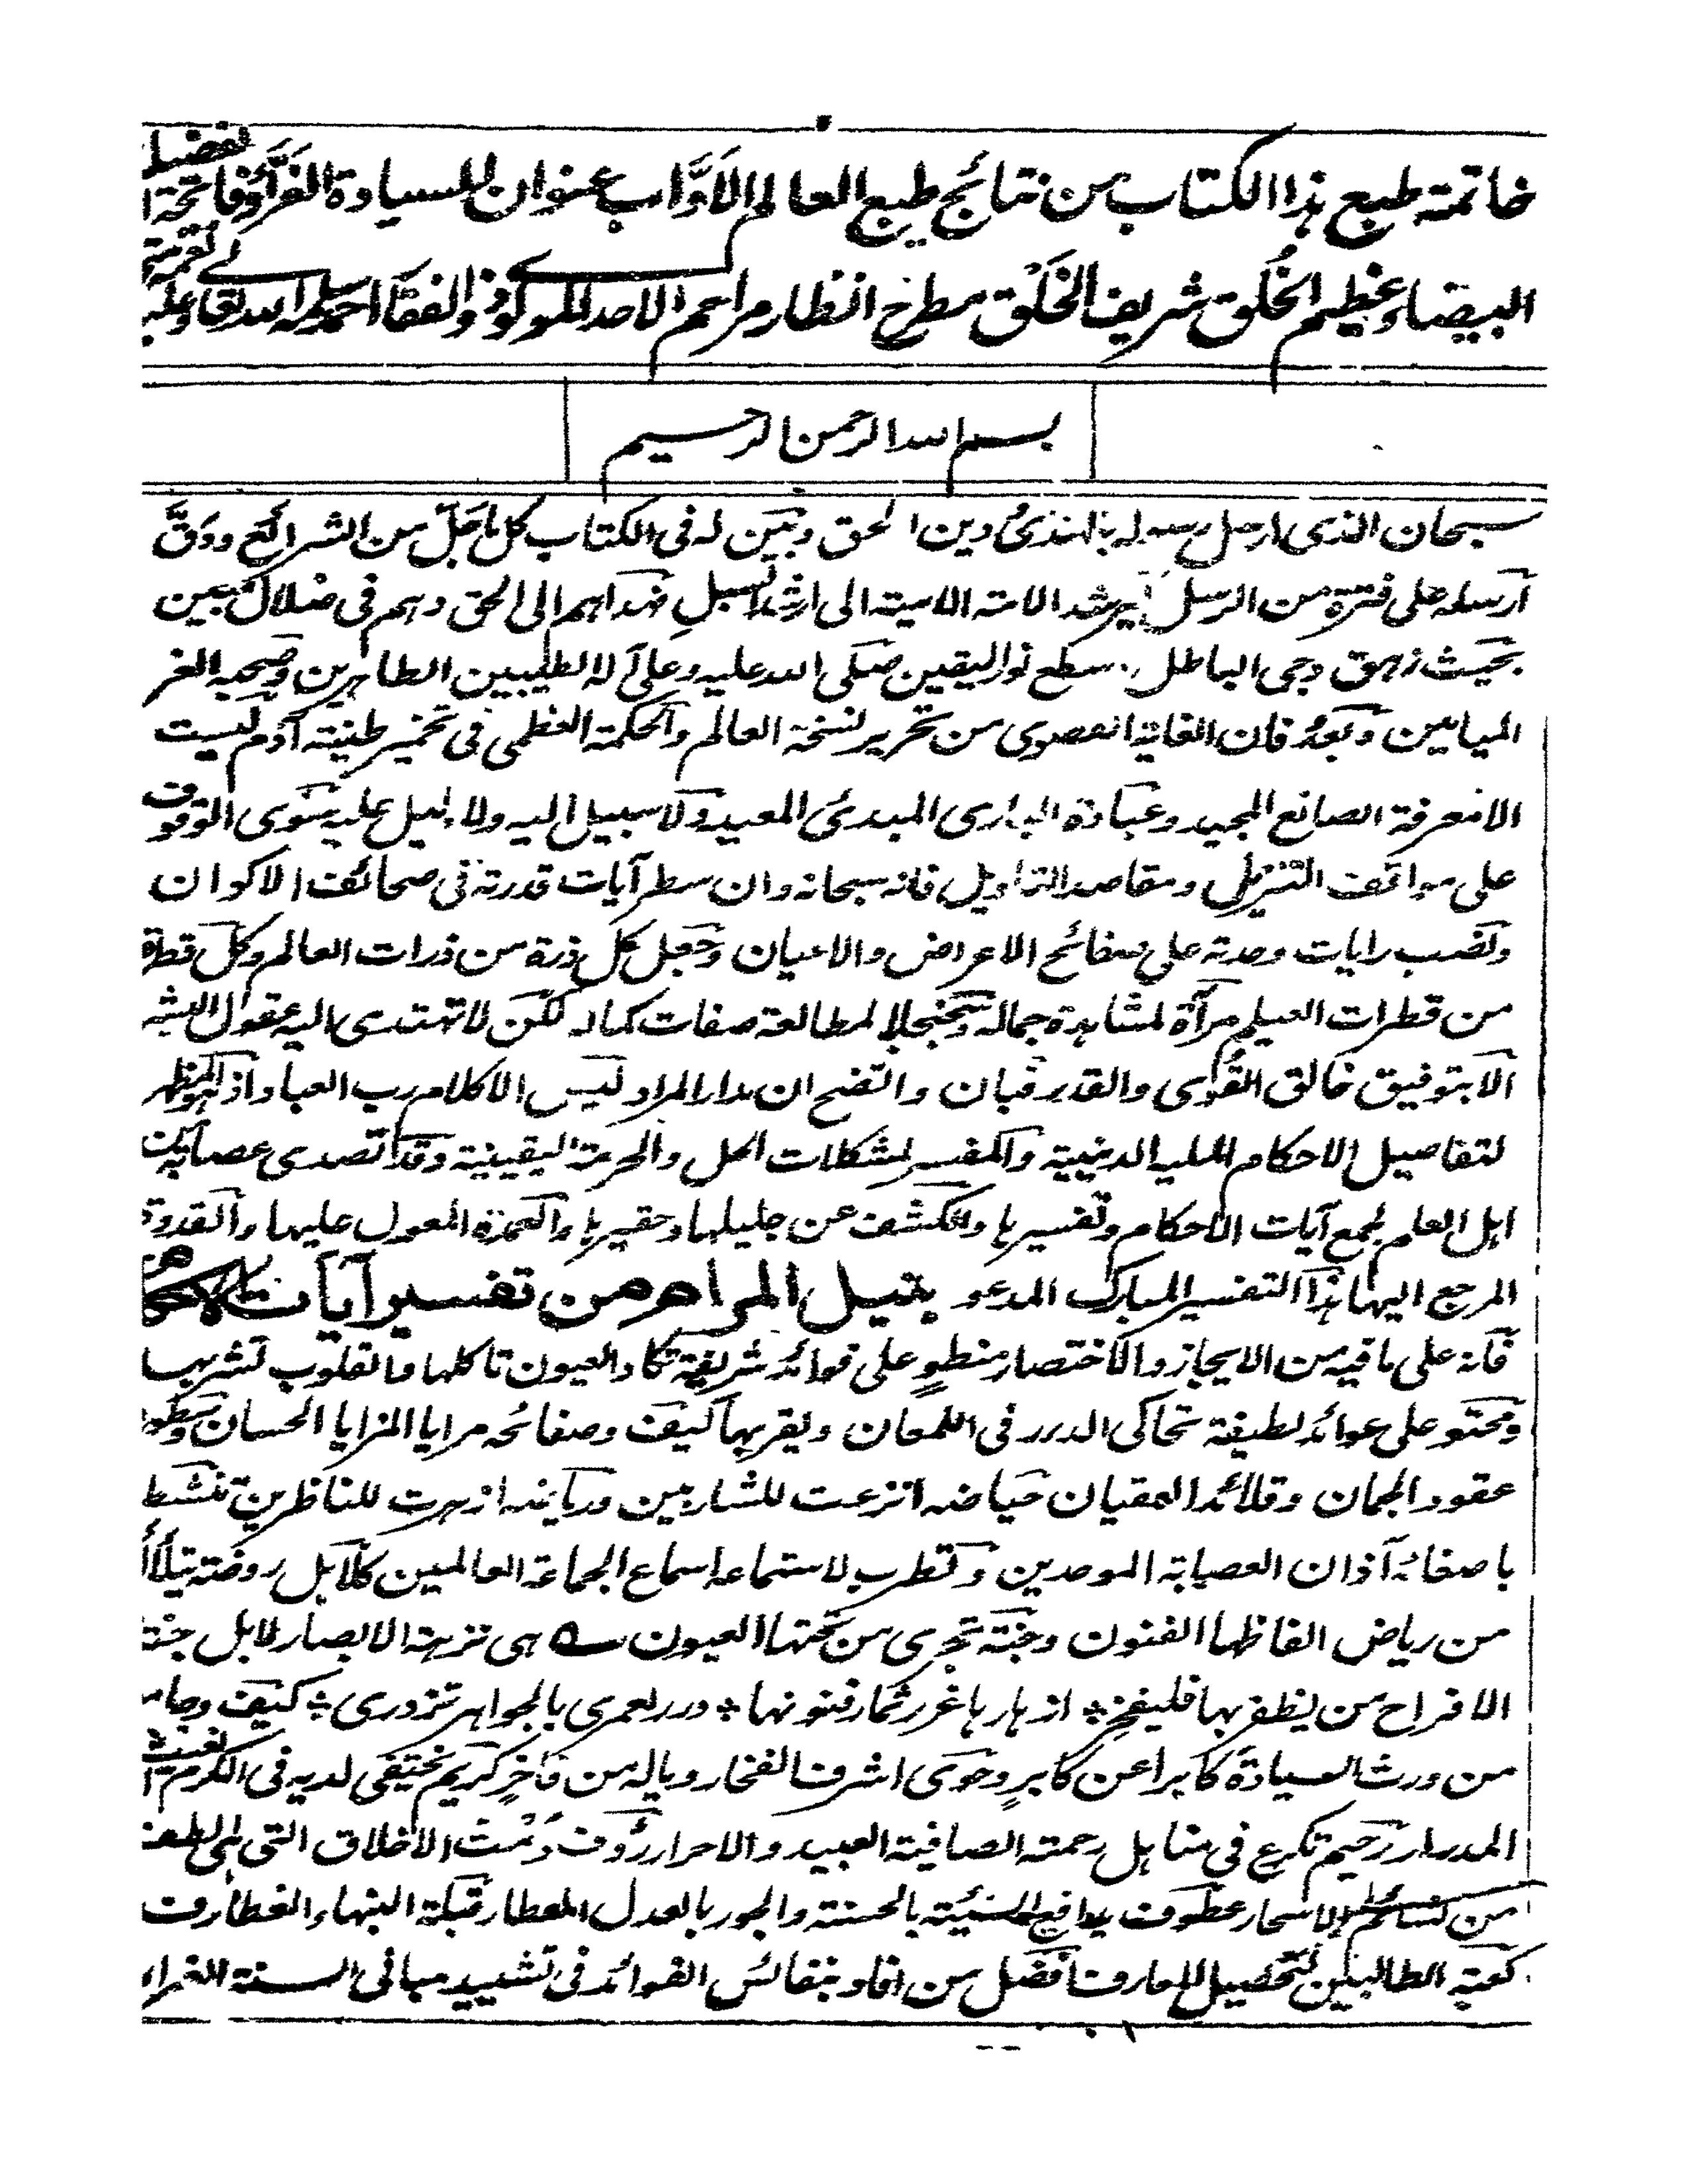 خاتمة طبع هذا الكتاب من نتائج طبع العالم الاوَّاب عنوان السيادة الغرّاء وفاتحة الفضيلة
البيضاء عظيم الخُلق شريف الخَلْق مطرح انظار مراحم الاحد المولوي ذوالفقار احمد سلمه الله تعالى وعليه نعمته
بسم الله الرحمن الرحيم
سبحان الذى ارسل رسوله بالهدىٰ ودين الحق وبَيَّن له فى الكتاب كل ما جَلّ من الشرائع ودَقّ
اَرسله على فترة من الرسل ليرشد الامة الامية الى ارشد السبل فهداهم الى الحق وهم فى ضلال مبين
بحيث زهق دجى الباطل وسطع نور اليقين صلى الله عليه وعلى آله الطيبين الطاهرين وصحبه الغر
الميامين وبَعدُ فان الغاية القصوى من تحرير نسخة العالم والحكمة العظمى فى تخمير طينة آدم ليست
الا معرفة الصانع المجيد وعبادة البارى المبدئ المعيد ولا سبيل اليه ولا دليل عليه سوى الوقوف
على مواقف التنزيل ومقاصد التاويل فانه سبحانه وان سطر آيات قدرته فى صحائف الاكوان
ونصب رايات وحدته على صفائح الاعراض والاعيان وجعل كل ذرة من ذرات العالم وكل قطرة
من قطرات العيلم مرآة لمشاهدة جماله وسجنجلا لمطالعة صفات كماله لكن لا تهتدى اليه عقول البشر
الا بتوفيق خالق القُوى والقدر فبان واتضح ان مدار المراد ليس الا كلام رب العباد اذ هو المظهر
لتفاصيل الاحكام الملية الدينية والمفسر لمشكلات الحل والحرمة اليقينية وقد تصدى عصابة من
اهل العلم لجمع آيات الاحكام وتفسيرها والكشف عن جليلها وحقيرها والعمدة المعول عليها والقدوة
المرجع اليها هذا التفسير المبارك المدعو بنيل المرام من تفسير آيات الاحكام
فانه على ما فيه من الايجاز والاختصار منطوٍ على فوائد شريفة تكاد العيون تاكلها والقلوب تشربها
ومحتو على عوائد لطيفة تحاكى الدرر فى اللمعان ويقربها كيف وصفائحه مرايا المزايا الحسان وسطوره
عقود الجمان وقلائد العقيان حياضه اترعت للشاربين ورياضه ازهرت للناظرين تنشط
باصغائه آذان العصابة الموحدين وتطرب لاستماعه اسماع الجماعة العالمين كلا بل روضة يتلألأ
من رياض الفاظها الفنون وجنة تجرى من تحتها العيون ؎ هى نزهة الابصار لا بل جنة
الافراح من يظفر بها فليفخر * ازهارها غرر ثمار فنونها * درر لعمرى بالجواهر تزدرى * كيف وجامعه
من ورث السيادة كابرا عن كابرٍ وحوى اشرف الفخار وياله من فاخرٍ كريم يختفى لديه فى الكرم الغيث
المدرار رحيم تكرع فى مناهل رحمته الصافية العبيد والاحرار رؤوف دَمْث الاخلاق التى هى الطف
من نسائم الاسحار عطوف يدافع السيئة بالحسنة والجور بالعدل المعطار قبلة النبهاء الغطارف
كعبة الطالبين لتحصيل المعارف افضل من افاد بنفائس الفوائد فى تشييد مبانى السنة الغراء